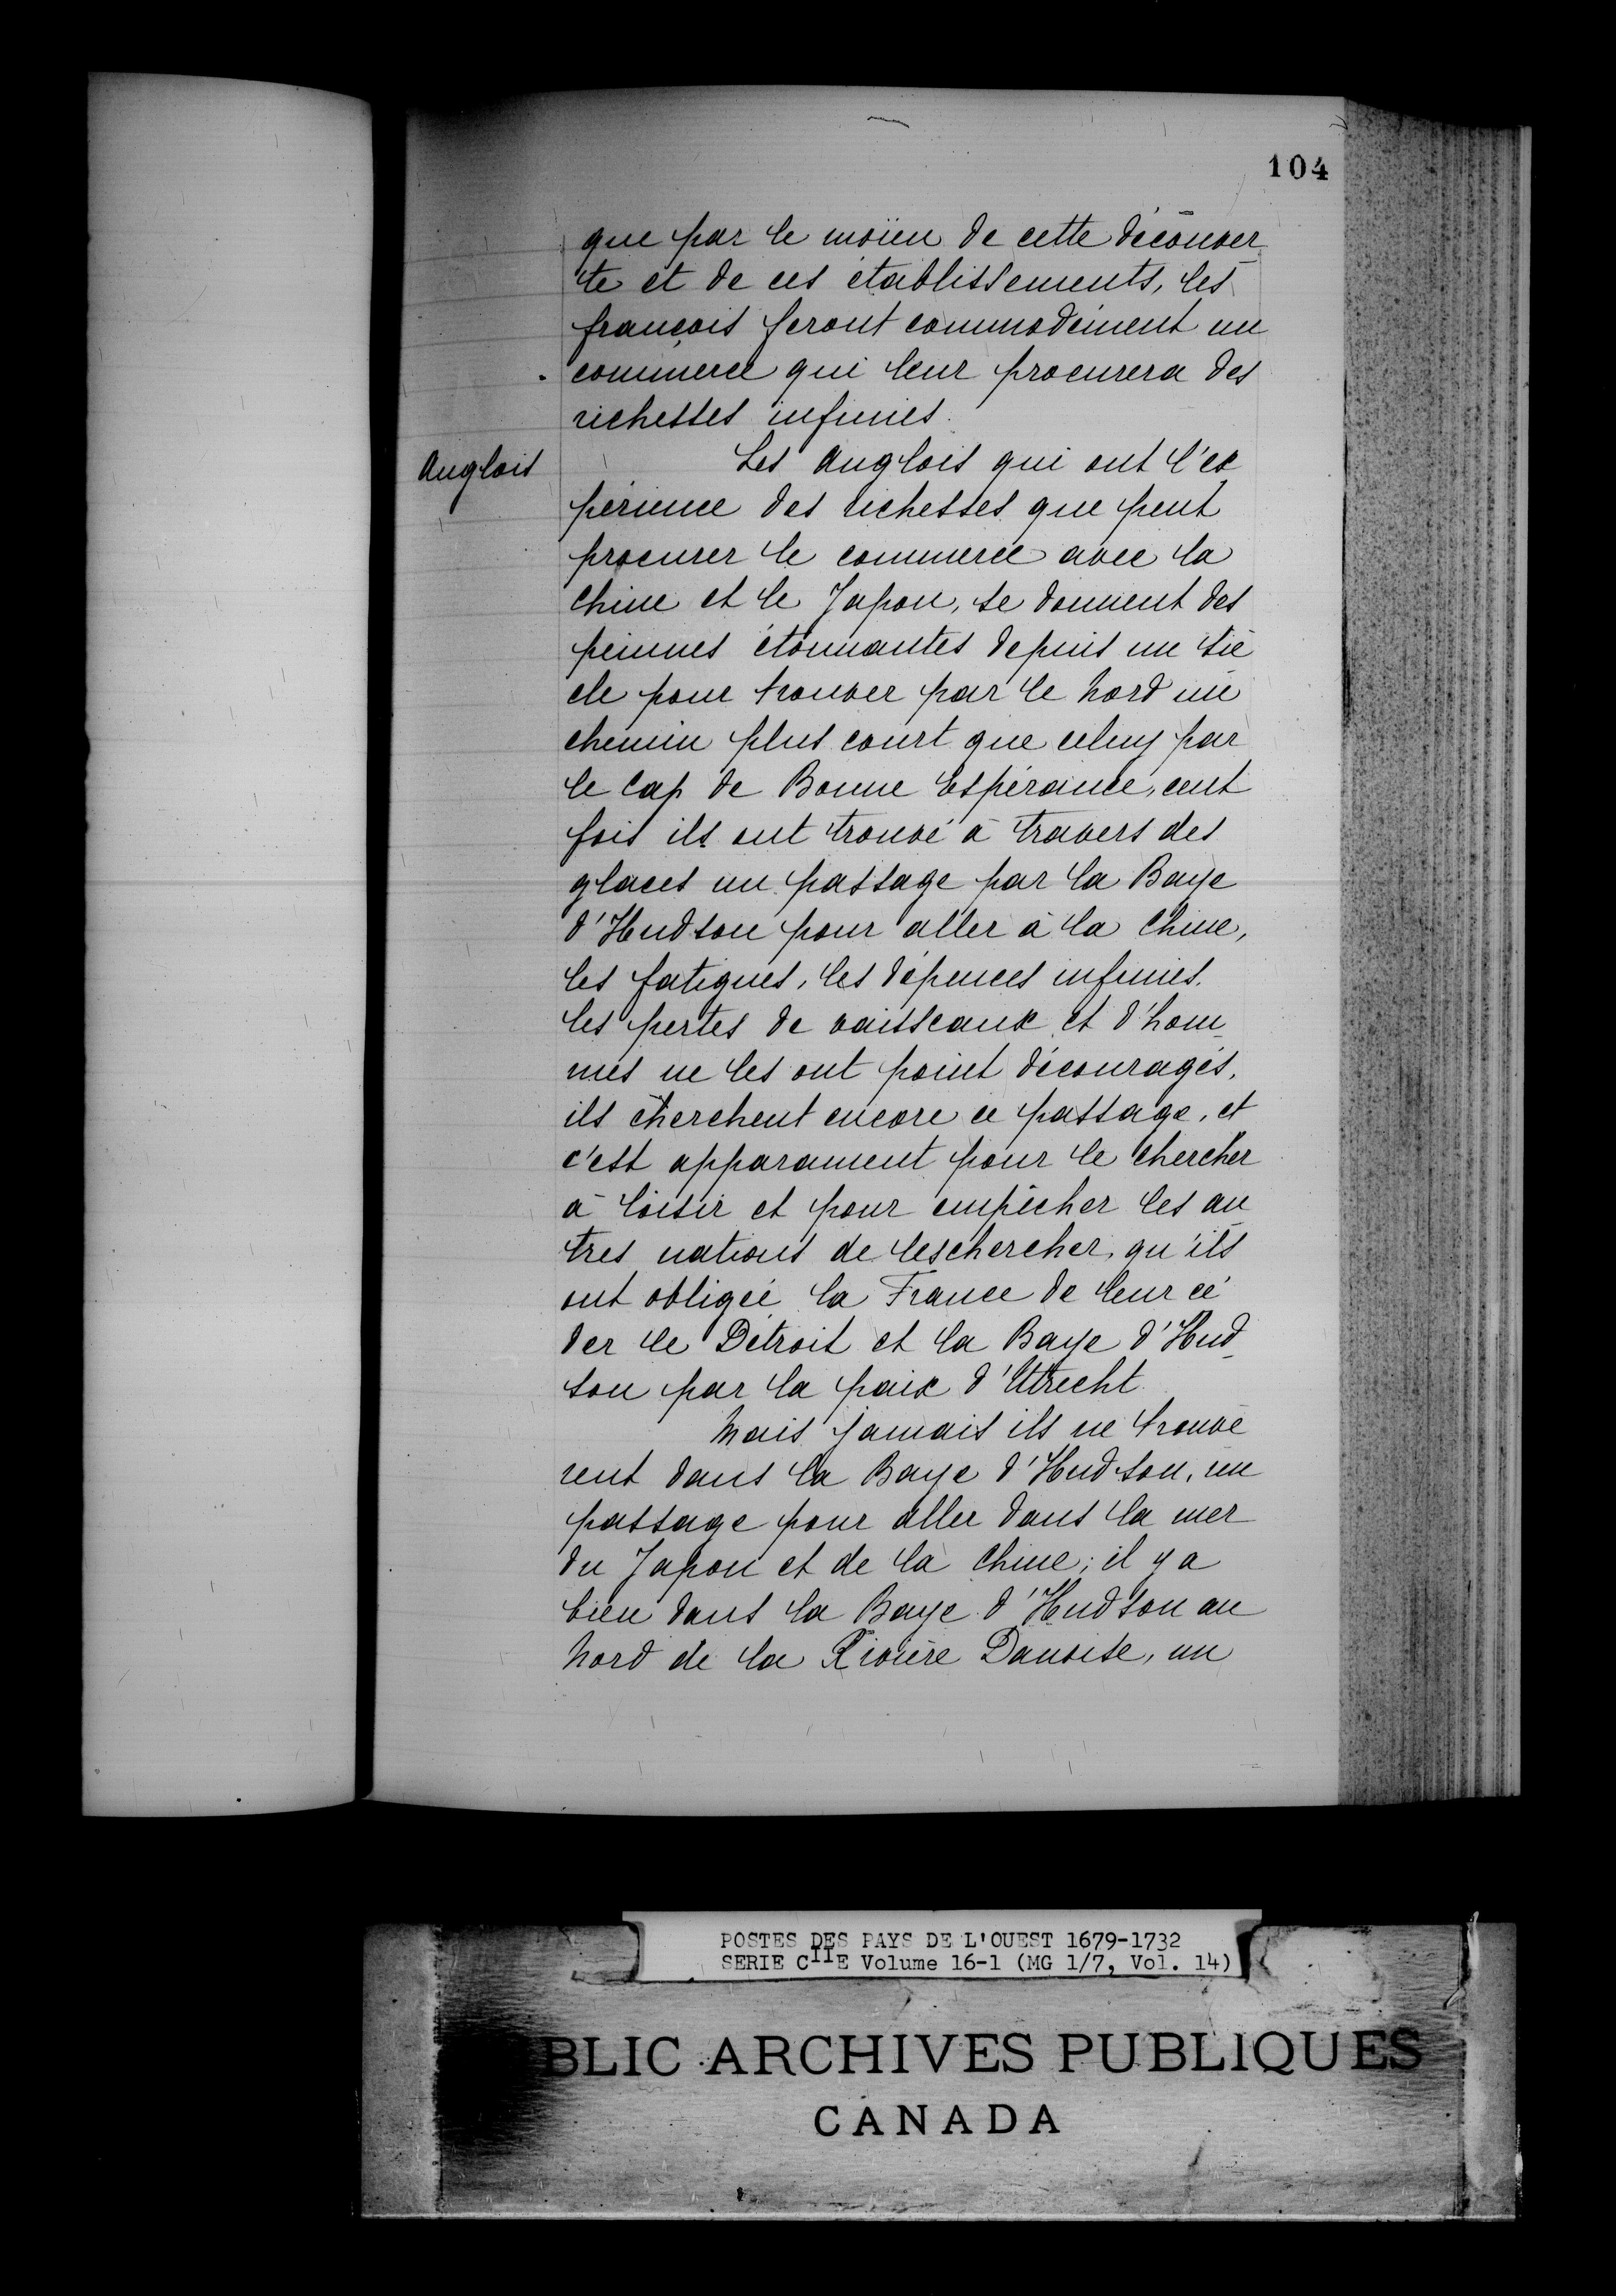 104
que par le moïen de cette découver
te et de ces établissements, les
françois feront commodément un
commerce qui leur procurera des
richesses infinies.
Anglois
Les Anglois qui ont l'ex
périence des richesses que peut
procurer le commerce avec la
Chine et le Japon, se donnent des
peinnes étonnantes depuis un siè
cle pour trouver par le Nord un
chemin plus court que celuy par
le Cap de Bonne Espérance, cent
fois ils ont trouvé à travers des
glaces un passage par la Baye
d'Hudson pour aller à la Chine,
les fatigues, les dépences infinies,
les pertes de vaisseaux et d'hom_
mes ne les ont point découragés,
ils cherchent encore ce passage, et
c'est apparament pour le chercher
à loisir et pour empêcher les au
tres nations de leschercher, qu'ils
ont obligéé la France de leur cé
der le Détroit et la Baye d'Hud_
son par la paix d'Utrecht.
Mais jamais ils ne trouvè
rent dans la Baye d'Hudson, un
passage pour aller dans la mer
du Japon et de la Chine; il y a
bien dans la Baye d'Hudson au
Nord de la Rivière Danoise, un
POSTES DES PAYS DE L'OUEST 1679-1732
SERIE CIIE Volume 16-1 (MG 1/7, Vol. 14)
BLIC ARCHIVES PUBLIQUES
CANADA